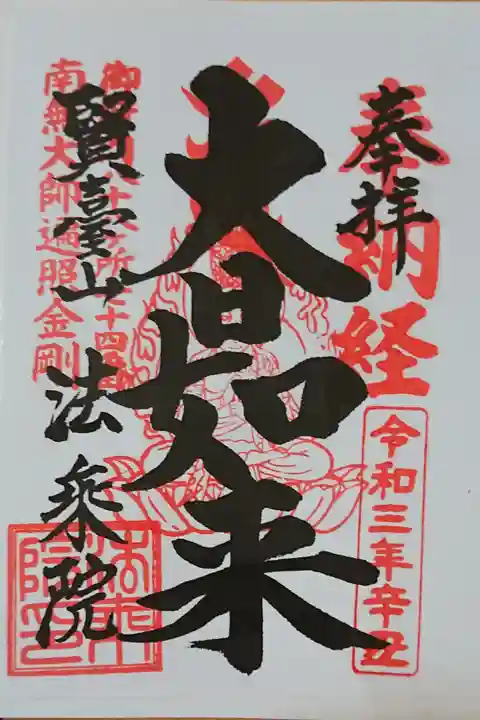 奉拝
納経
令和三年辛丑
大日如来
御 十 所 十四
南無大師遍照金剛
賢臺山 法乗院
法乗院印